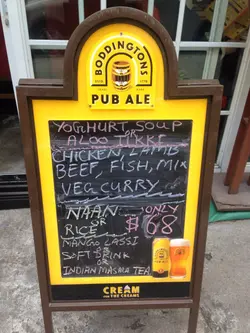 BODDINGTONS
PUB ALE
YOGHURT SOUP
OR
ALOO TIKKI
CHICKEN, LAMB
BEEF, FISH, MIX
VEG CURRY
NAAN
OR
RICE
ONLY
$68
MANGO LASSI
OR
SOFT DRINK
OR
INDIAN MASALA TEA
CREAM
OF THE CREAMS